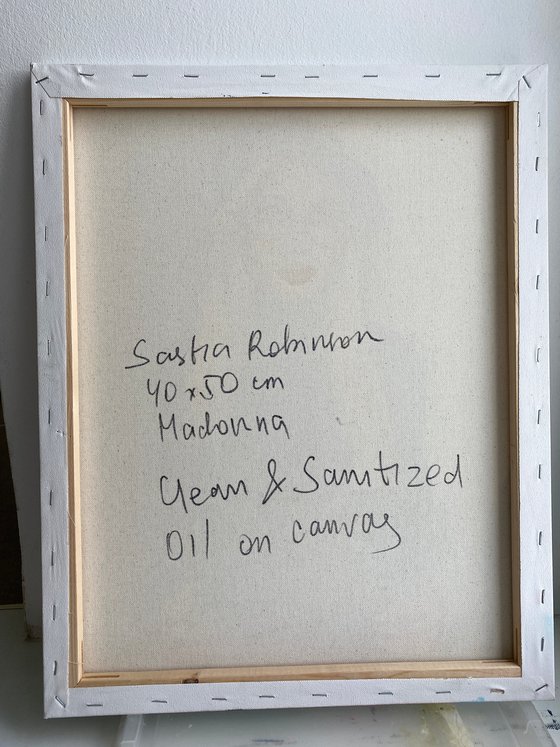 Sastia Robinson
40x50 cm
Madonna
Clean & Sanitized
Oil on canvas